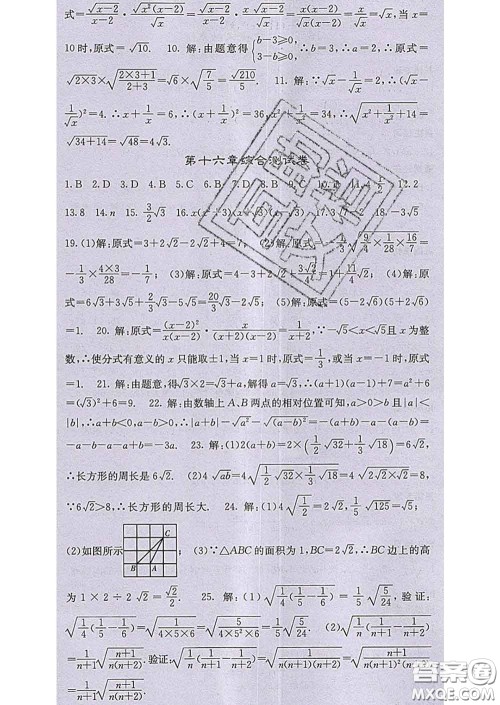 式=√(x-2)/√x · x/√(x(x-2))=√(x-2)/√x · x√(x-2)/(x(x-2))=√x(x-2)/(x(x-2))=√x,当 x=
10时,原式=√10. 10. 解:由题意得{b-3≥0, 3-b≥0,∴b=3,∴a=2,∴原式=
√(2×3)×√((2×3+1)/(2+3))=√6×√(7/5)=√210/5. 11. 解:∵√x-1/√x=2,∴(√x-
1/√x)²=4.∴x+1/x=6,∴(x+1/x)²=36,x²+1/x²=34,∴√(x²+1/x²+14)=
√(34+14)=√48=4√3.
第十六章综合测试卷
1.B 2.D 3.D 4.B 5.C 6.B 7.D 8.B 9.C 10. 11.4 12.2
13.8 14.n 15.(3/2)√3 16.x(x-√3)(x+√3) 17.3 18.-√5
19.(1)解:原式=3+2√2-5√2+4=7-3√2; (2)解:原式=-√(9/4 · 1/28 · 16/7)
=-1/3×(4×3)/28=-1/7; (3)解:原式=4-3+2√2+=1+; (4)解:原
式=6√3+3√5+3√3-5√5=3-2√5; (5)解:原式=(5-2√6)(5+2√6)=
1. 20. 解:原式=(x-2)²/(x(x-2)) · x/((x+2)(x-2))=1/(x+2),∵-√5<x<√5且 x 为整
数,∴使分式有意义的 x 只能取±1,当 x=1时,原式=1/3,或当 x=-1时,原式
=1. 21. 解:由题意,得√3×2=√3+a,解得 a=√3,∴(a+1)(a-1)+7=a²+6
=(√3)²+6=9. 22. 解:由数轴上 A、B 两点的相对位置可知,a>0>b 且|a|<
|b|,∴a+b<0,a-b>0,∴|a+b|-√a²-√(a-b)²=-(a+b)-a-(a-b)=
-a-b-a-a+b=-3a. 23. 解:(1)2(a+b)=2×(1/2√32+1/3√18)=6√2,
∴长方形的周长是6√2. (2)4√ab=4√(1/2√32×1/3√18)=4√(2√2×√2)=8,
∵6√2>8,∴长方形的周长大. 24. 解:(1)4√(1/2)=2√2,1/5√125=√5;
(2)如图所示 A B C; (3)∵△ABC的面积为1,BC=2√2,∴BC边上的高
为1×2÷2√2=√2/2. 25. 解:(1)√(1/4(1/5-1/6))=1/5√(5/24),验证:
√(1/4(1/5-1/6))=√(1/(4×5×6))=√(5/(4×5²×6))=1/5√(5/24). (2)√(1/n(1/(n+1)-1/(n+2)))
=1/(n+1)√((n+1)/(n(n+2))).验证:√(1/n(1/(n+1)-1/(n+2)))=√(1/(n(n+1)(n+2)))=√((n+1)/(n(n+1)²(n+2)))
=1/(n+1)√((n+1)/(n(n+2))).
答案圈
MXQE.COM